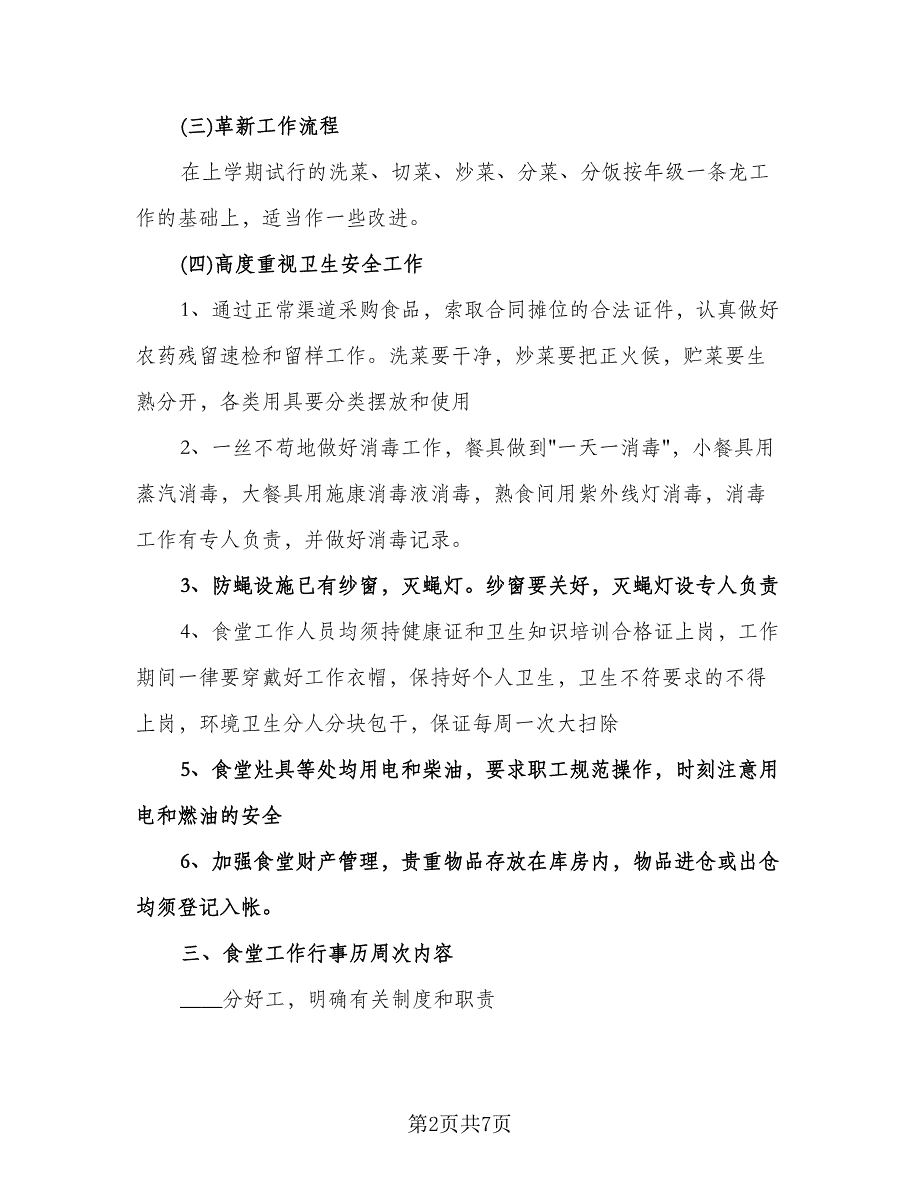 (三)革新工作流程
在上学期试行的洗菜、切菜、炒菜、分菜、分饭按年级一条龙工
作的基础上，适当作一些改进。
(四)高度重视卫生安全工作
1、通过正常渠道采购食品，索取合同摊位的合法证件，认真做好
农药残留速检和留样工作。洗菜要干净，炒菜要把正火候，贮菜要生
熟分开，各类用具要分类摆放和使用
2、一丝不苟地做好消毒工作，餐具做到"一天一消毒"，小餐具用
蒸汽消毒，大餐具用施康消毒液消毒，熟食间用紫外线灯消毒，消毒
工作有专人负责，并做好消毒记录。
3、防蝇设施已有纱窗，灭蝇灯。纱窗要关好，灭蝇灯设专人负责
4、食堂工作人员均须持健康证和卫生知识培训合格证上岗，工作
期间一律要穿戴好工作衣帽，保持好个人卫生，卫生不符要求的不得
上岗，环境卫生分人分块包干，保证每周一次大扫除
5、食堂灶具等处均用电和柴油，要求职工规范操作，时刻注意用
电和燃油的安全
6、加强食堂财产管理，贵重物品存放在库房内，物品进仓或出仓
均须登记入帐。
三、食堂工作行事历周次内容
____分好工，明确有关制度和职责
第2页共7页